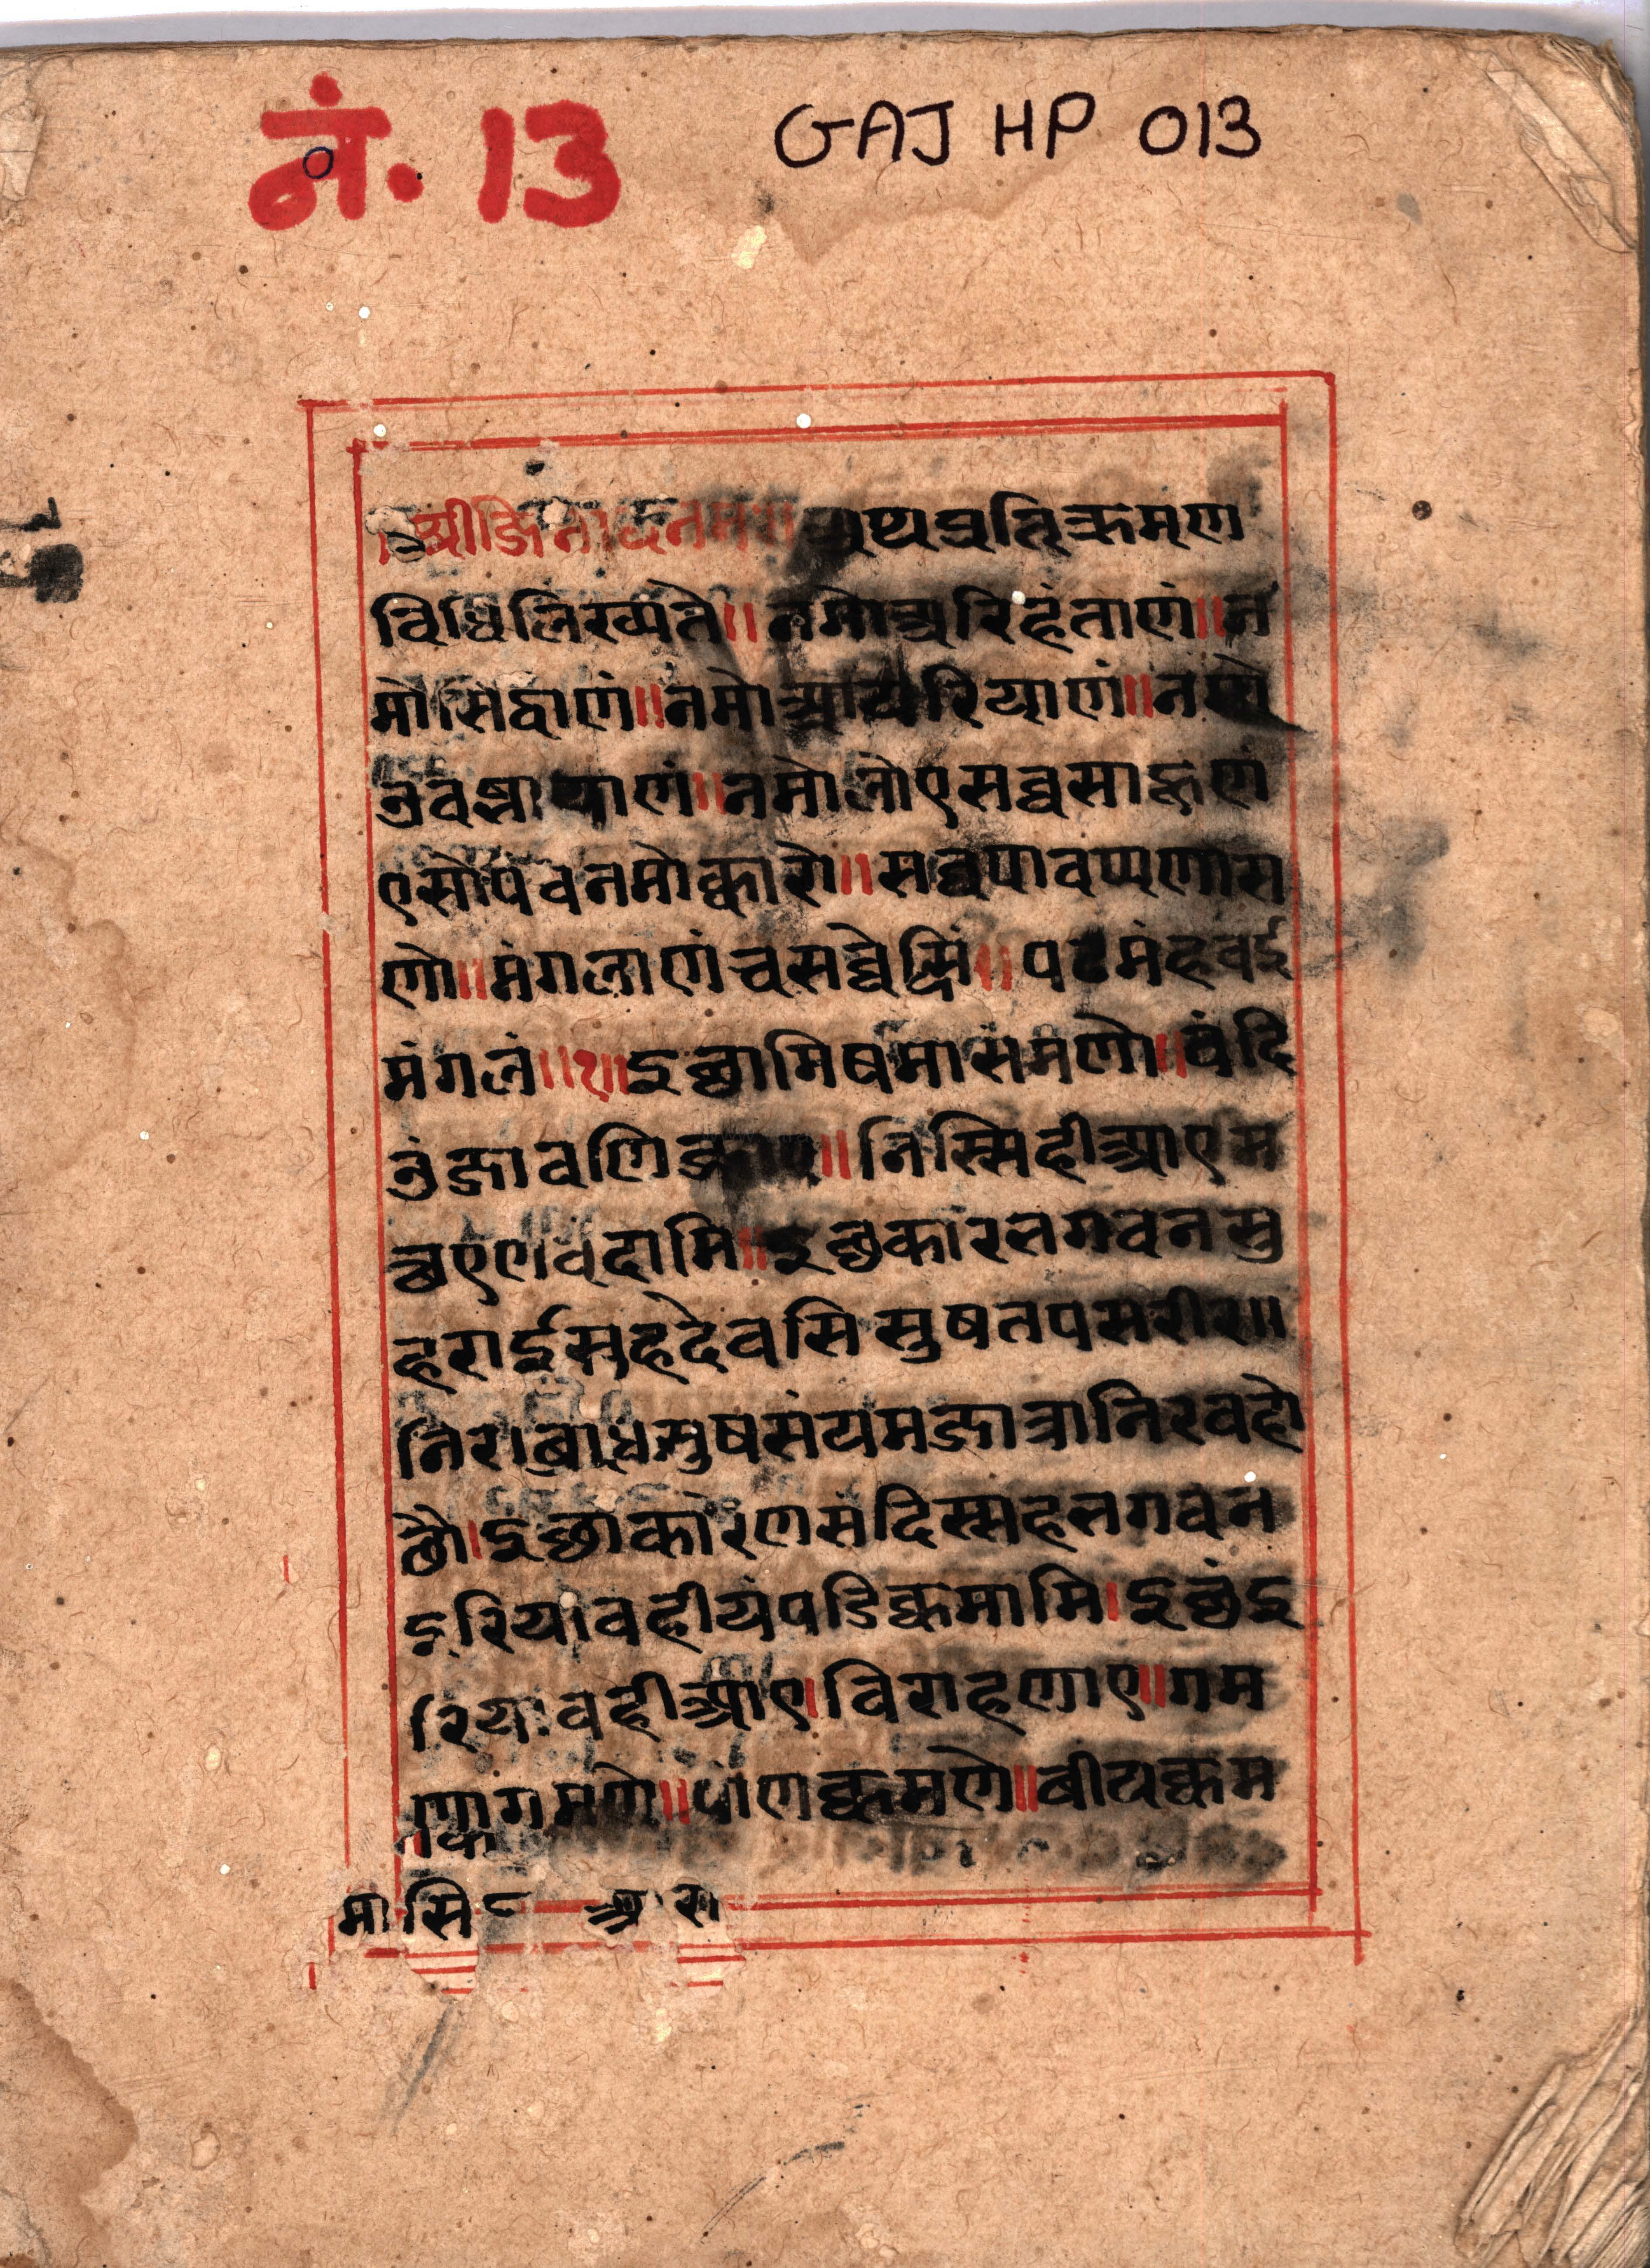 नं. 13
GAJ HP 013
श्रीजिनाय नमः अथ प्रतिक्रमण
विधि लिख्यते ॥ नमो अरिहंताणं ॥ न
मो सिद्धाणं ॥ नमो आयरियाणं ॥ नमो
उवझायाणं ॥ नमो लोए सव्वसाहूणं
एसो पंच नमोक्कारो ॥ सव्वपावप्पणास
णो ॥ मंगलाणं च सव्वेसिं ॥ पढमं हवई
मंगलं ॥१॥ इच्छामि षमासमणो ॥ वंदि
उं जावणिज्जाए ॥ निस्सिहीआए म
त्थएण वंदामि ॥ इच्छकार भगवन सु
हराई सुहदेवसि सुष तप सरीर ॥
निराबाध सुष संयम जात्रा निरवहो
छो । इच्छाकारेण संदिस्सह भगवन
इरियावहीयं पडिक्कमामि । इच्छं इ
रियावहीआए । विराहणाए ॥ गम
णागमणे ॥ पाणक्कमणे ॥ बीयक्कम
मा सि